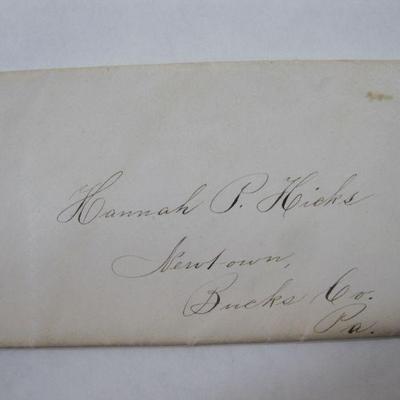 Hannah P. Hicks
Newtown,
Bucks Co.
Pa.